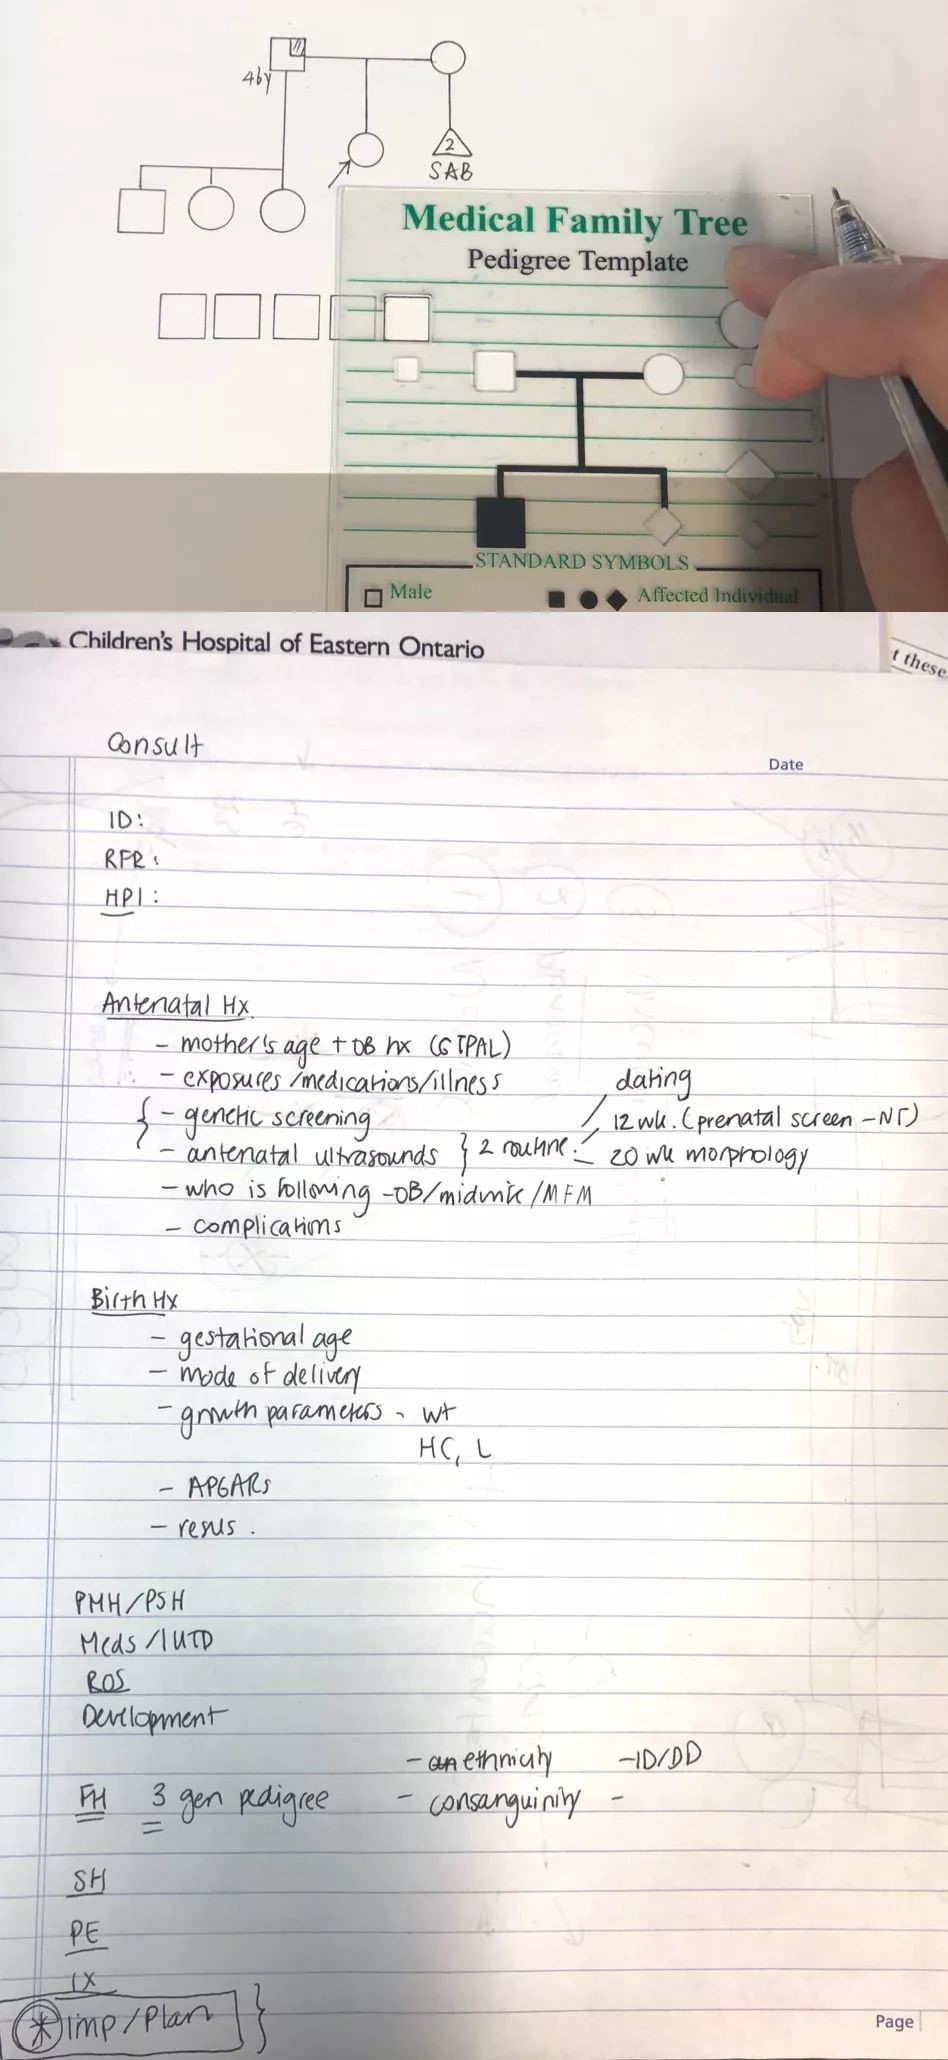 46y
2
SAB
Medical Family Tree
Pedigree Template
STANDARD SYMBOLS
Male
Affected Individual
Children's Hospital of Eastern Ontario
t these
Consult
Date
ID:
RFR:
HPI:
Antenatal Hx.
- mother's age + OB hx (GTPAL)
- exposures/medications/illness
dating
- genetic screening
12 wk. (prenatal screen - NT)
- antenatal ultrasounds } 2 routine:
20 wk morphology
- who is following - OB/midwife/MFM
- complications
Birth Hx
- gestational age
- mode of delivery
- growth parameters - wt
HC, L
- APGARs
- resus.
PMH/PSH
Meds/IUTD
ROS
Development
- ethnicity - ID/DD
FH 3 gen pedigree - consanguinity -
SH
PE
IX
* Imp/Plan }
Page